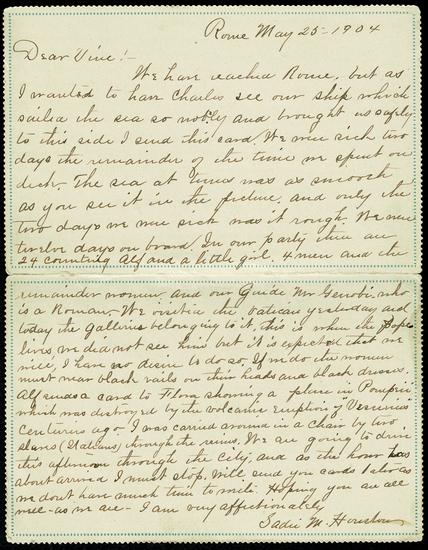 Rome May 25-1904
Dear Vine!-
We have reached Rome, but as
I wanted to have Charles see our ship which
sailed the sea so nobly and brought us safely
to this side I send this card. We were sick two
days the remainder of the time we spent on
deck. The sea at times was as smooth
as you see it in the picture, and only the
two days we were sick was it rough. We were
twelve days on board. In our party there are
24 counting Alf and a little girl. 4 men and the
remainder women, and our Guide Mr who
is a Roman. We visited the vatican yesterday and
today the Galleries belonging to it, this is where the Pope
lives, we did not see him but it is expected that we
will, I have no desire to do so. If we do the women
must wear black vails on their heads and black dresses.
Alf sends a card to Flora showing a place in Pompeii
which was destroyed by the volcanic eruption of "Vesuvius"
centuries ago. I was carried around in a chair by two
slaves (Italians) through the ruins. We are going to drive
this afternoon through the City, and as the hour has
about arrived I must stop. Will send you cards later as
we dont have much time to write. Hoping you are all
well- as we are- I am very affectionately
Sadie M.